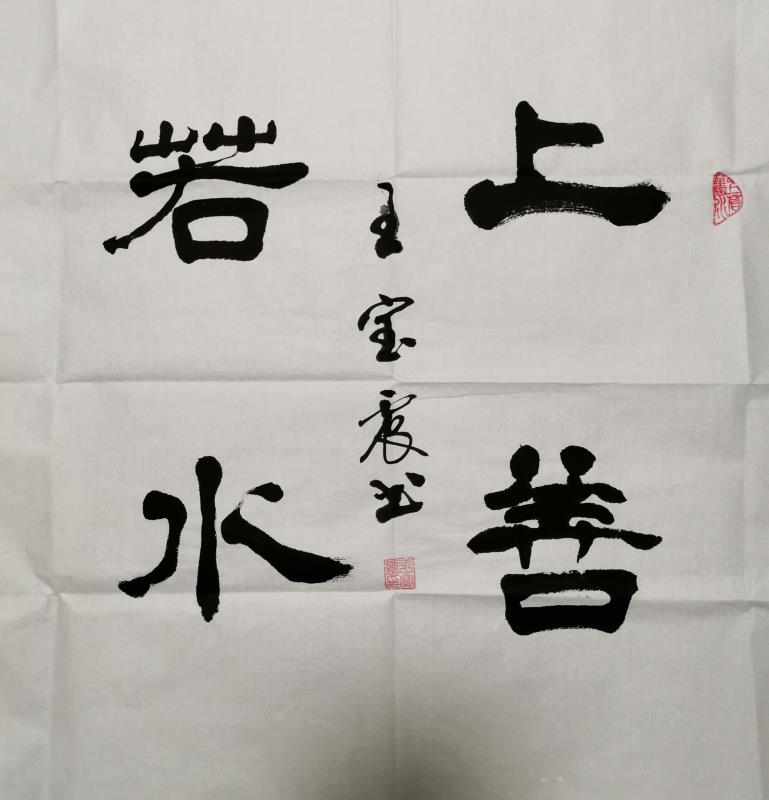 上善
若水
王宝震书